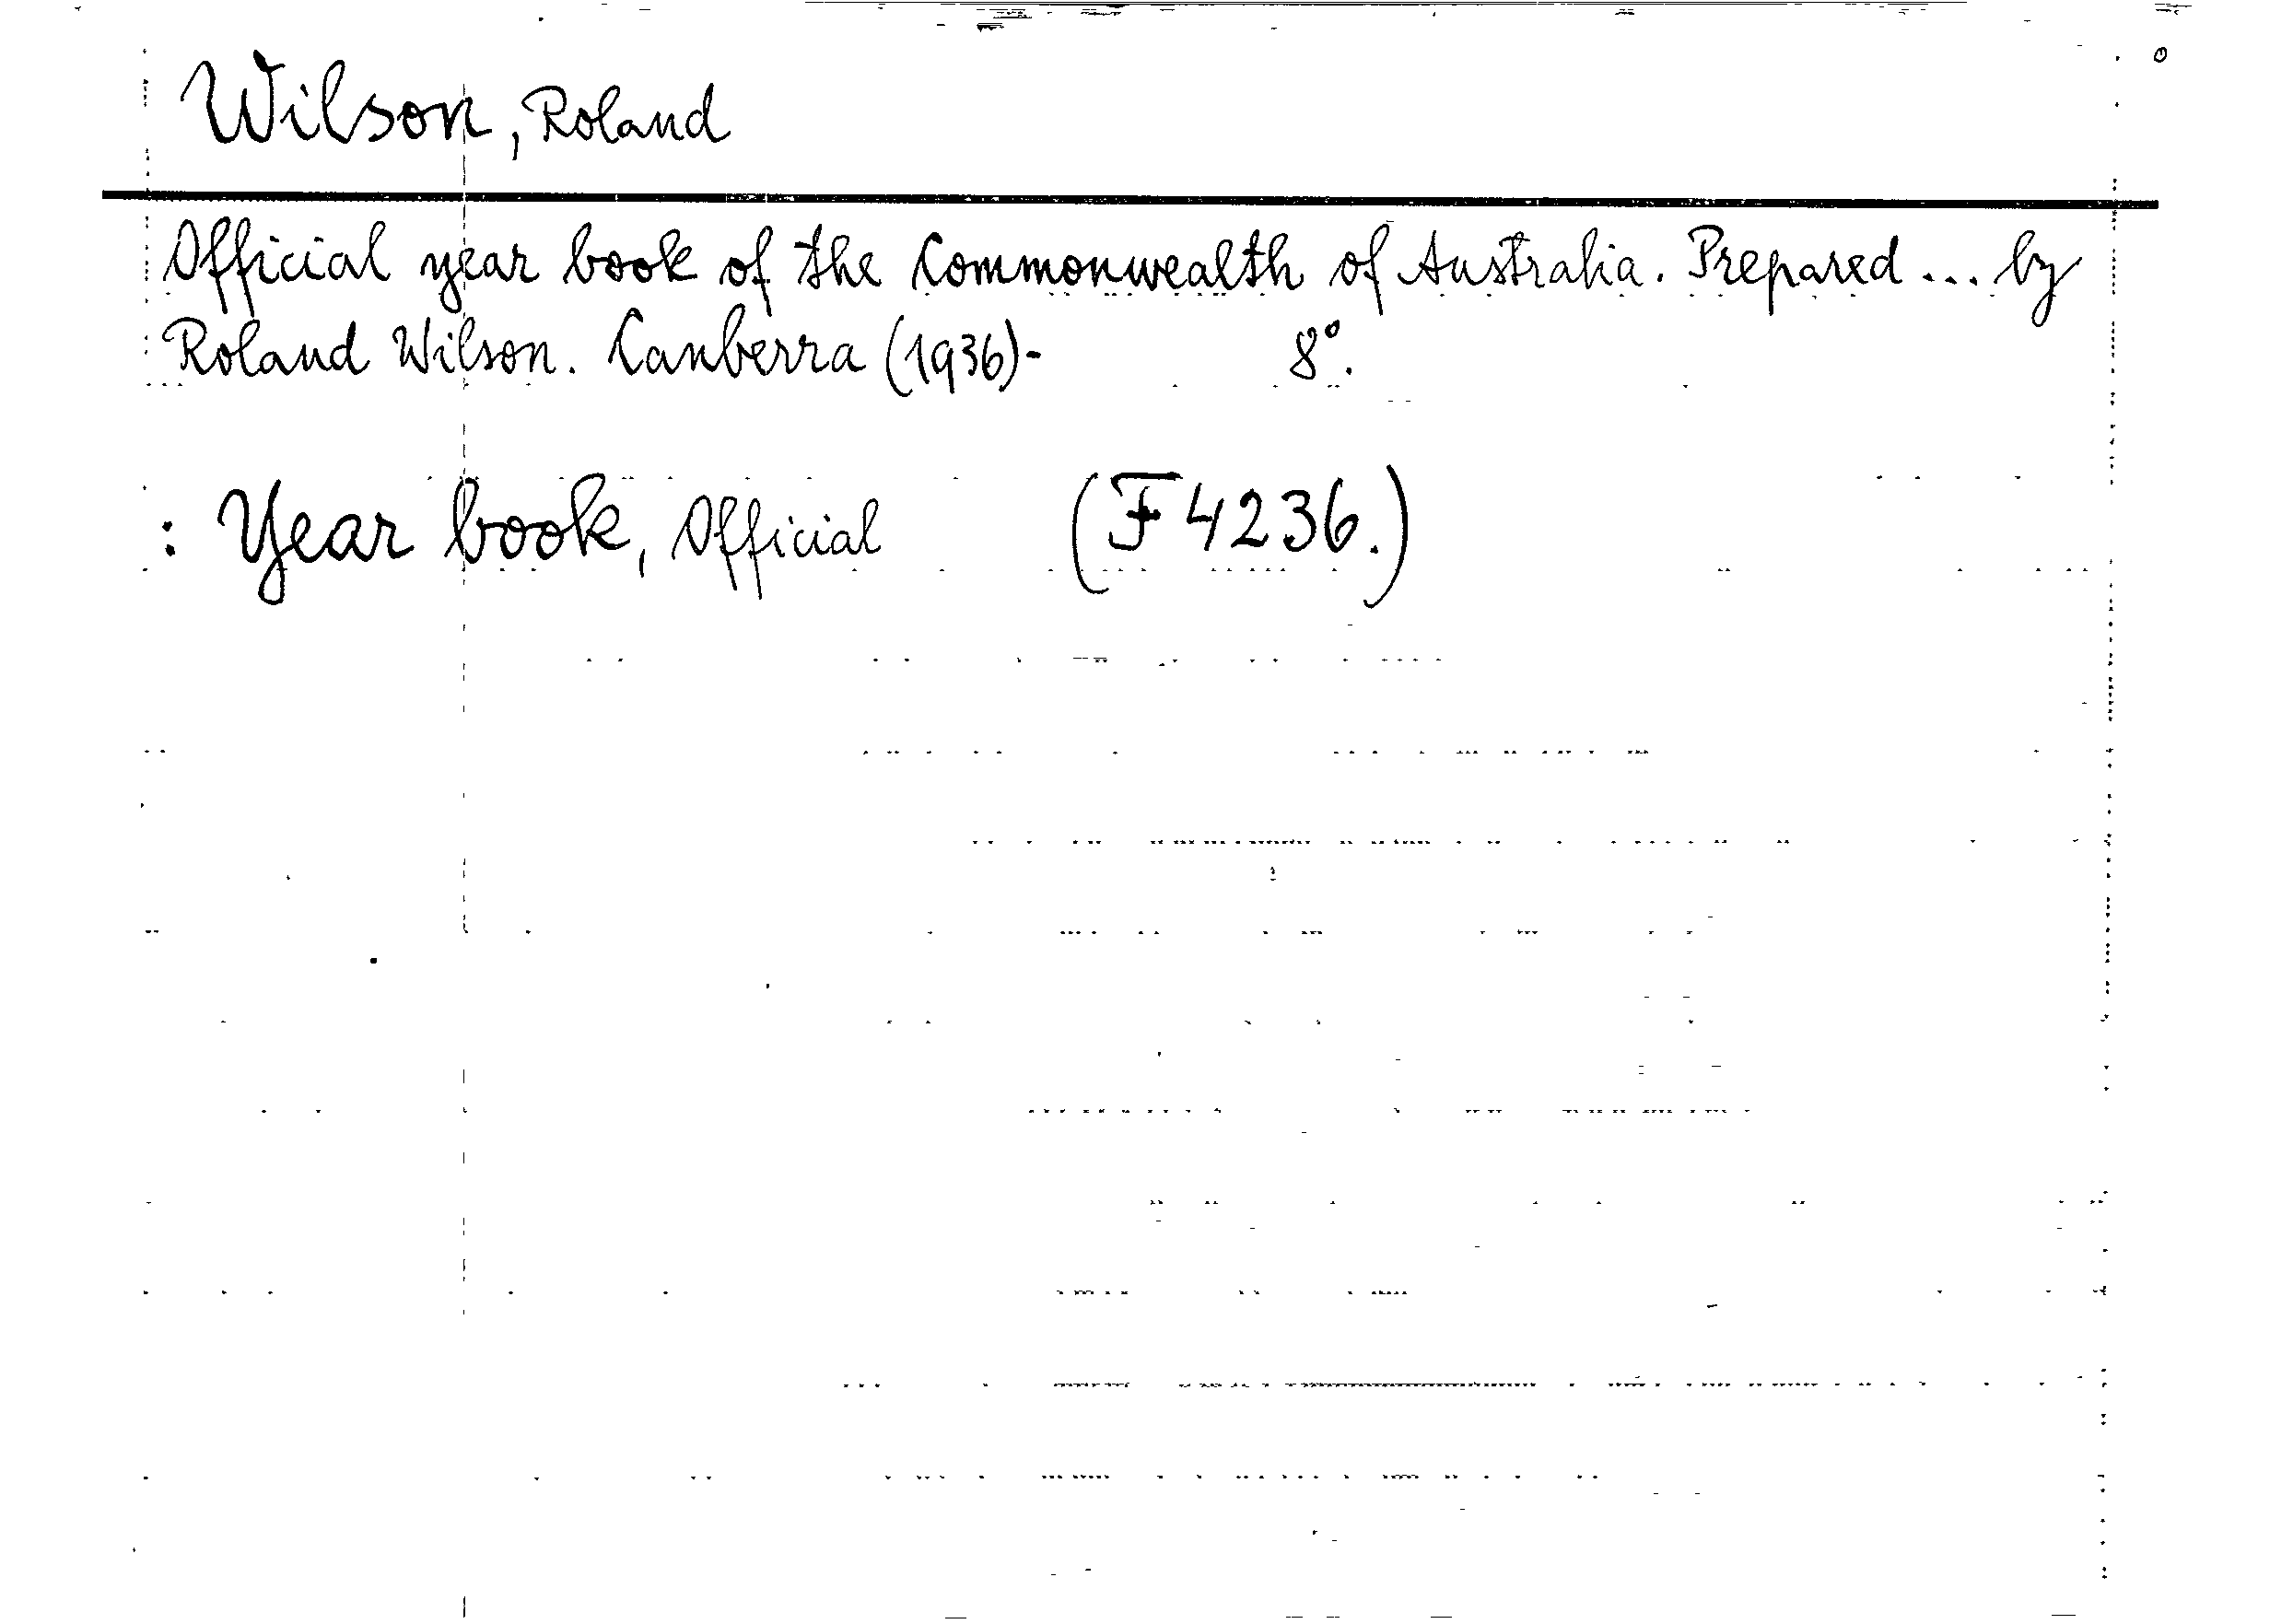 Wilson, Roland
Official year book of the Commonwealth of Australia. Prepared ... by
Roland Wilson. Canberra (1936)- 8°.
: Year book, Official (F 4236.)